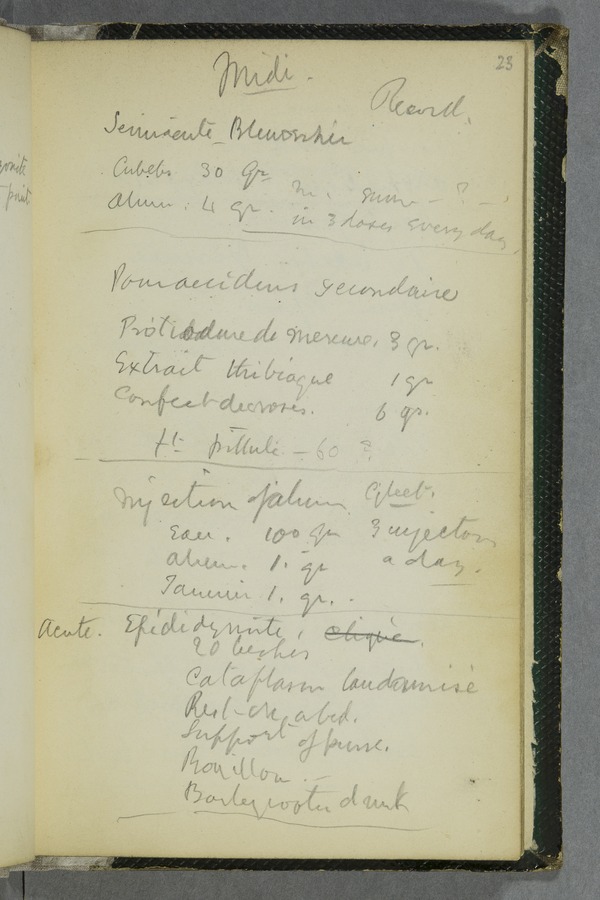 23
Midi.
Record.
Semiacute Blenorrhée
Cubebs 30 gr
Alum. 4 gr. m. - ? -
in 3 doses every day,
onite
point
Pour accidens secondaire
Protiodure de mercure, 3 gr.
Extrait thibiaque 1 gr
Confect de roses. 6 gr.
ft pillule - 60
Injection of alum Gleet.
Eau. 100 gr 3 injections
alum. 1. gr a day.
Tannin 1. gr.
Acute. Epididymite, clique.
20 leeches
Cataplasm laudanisé
Rest - in a bed.
Support of purse.
Bouillon. -
Barley water drink